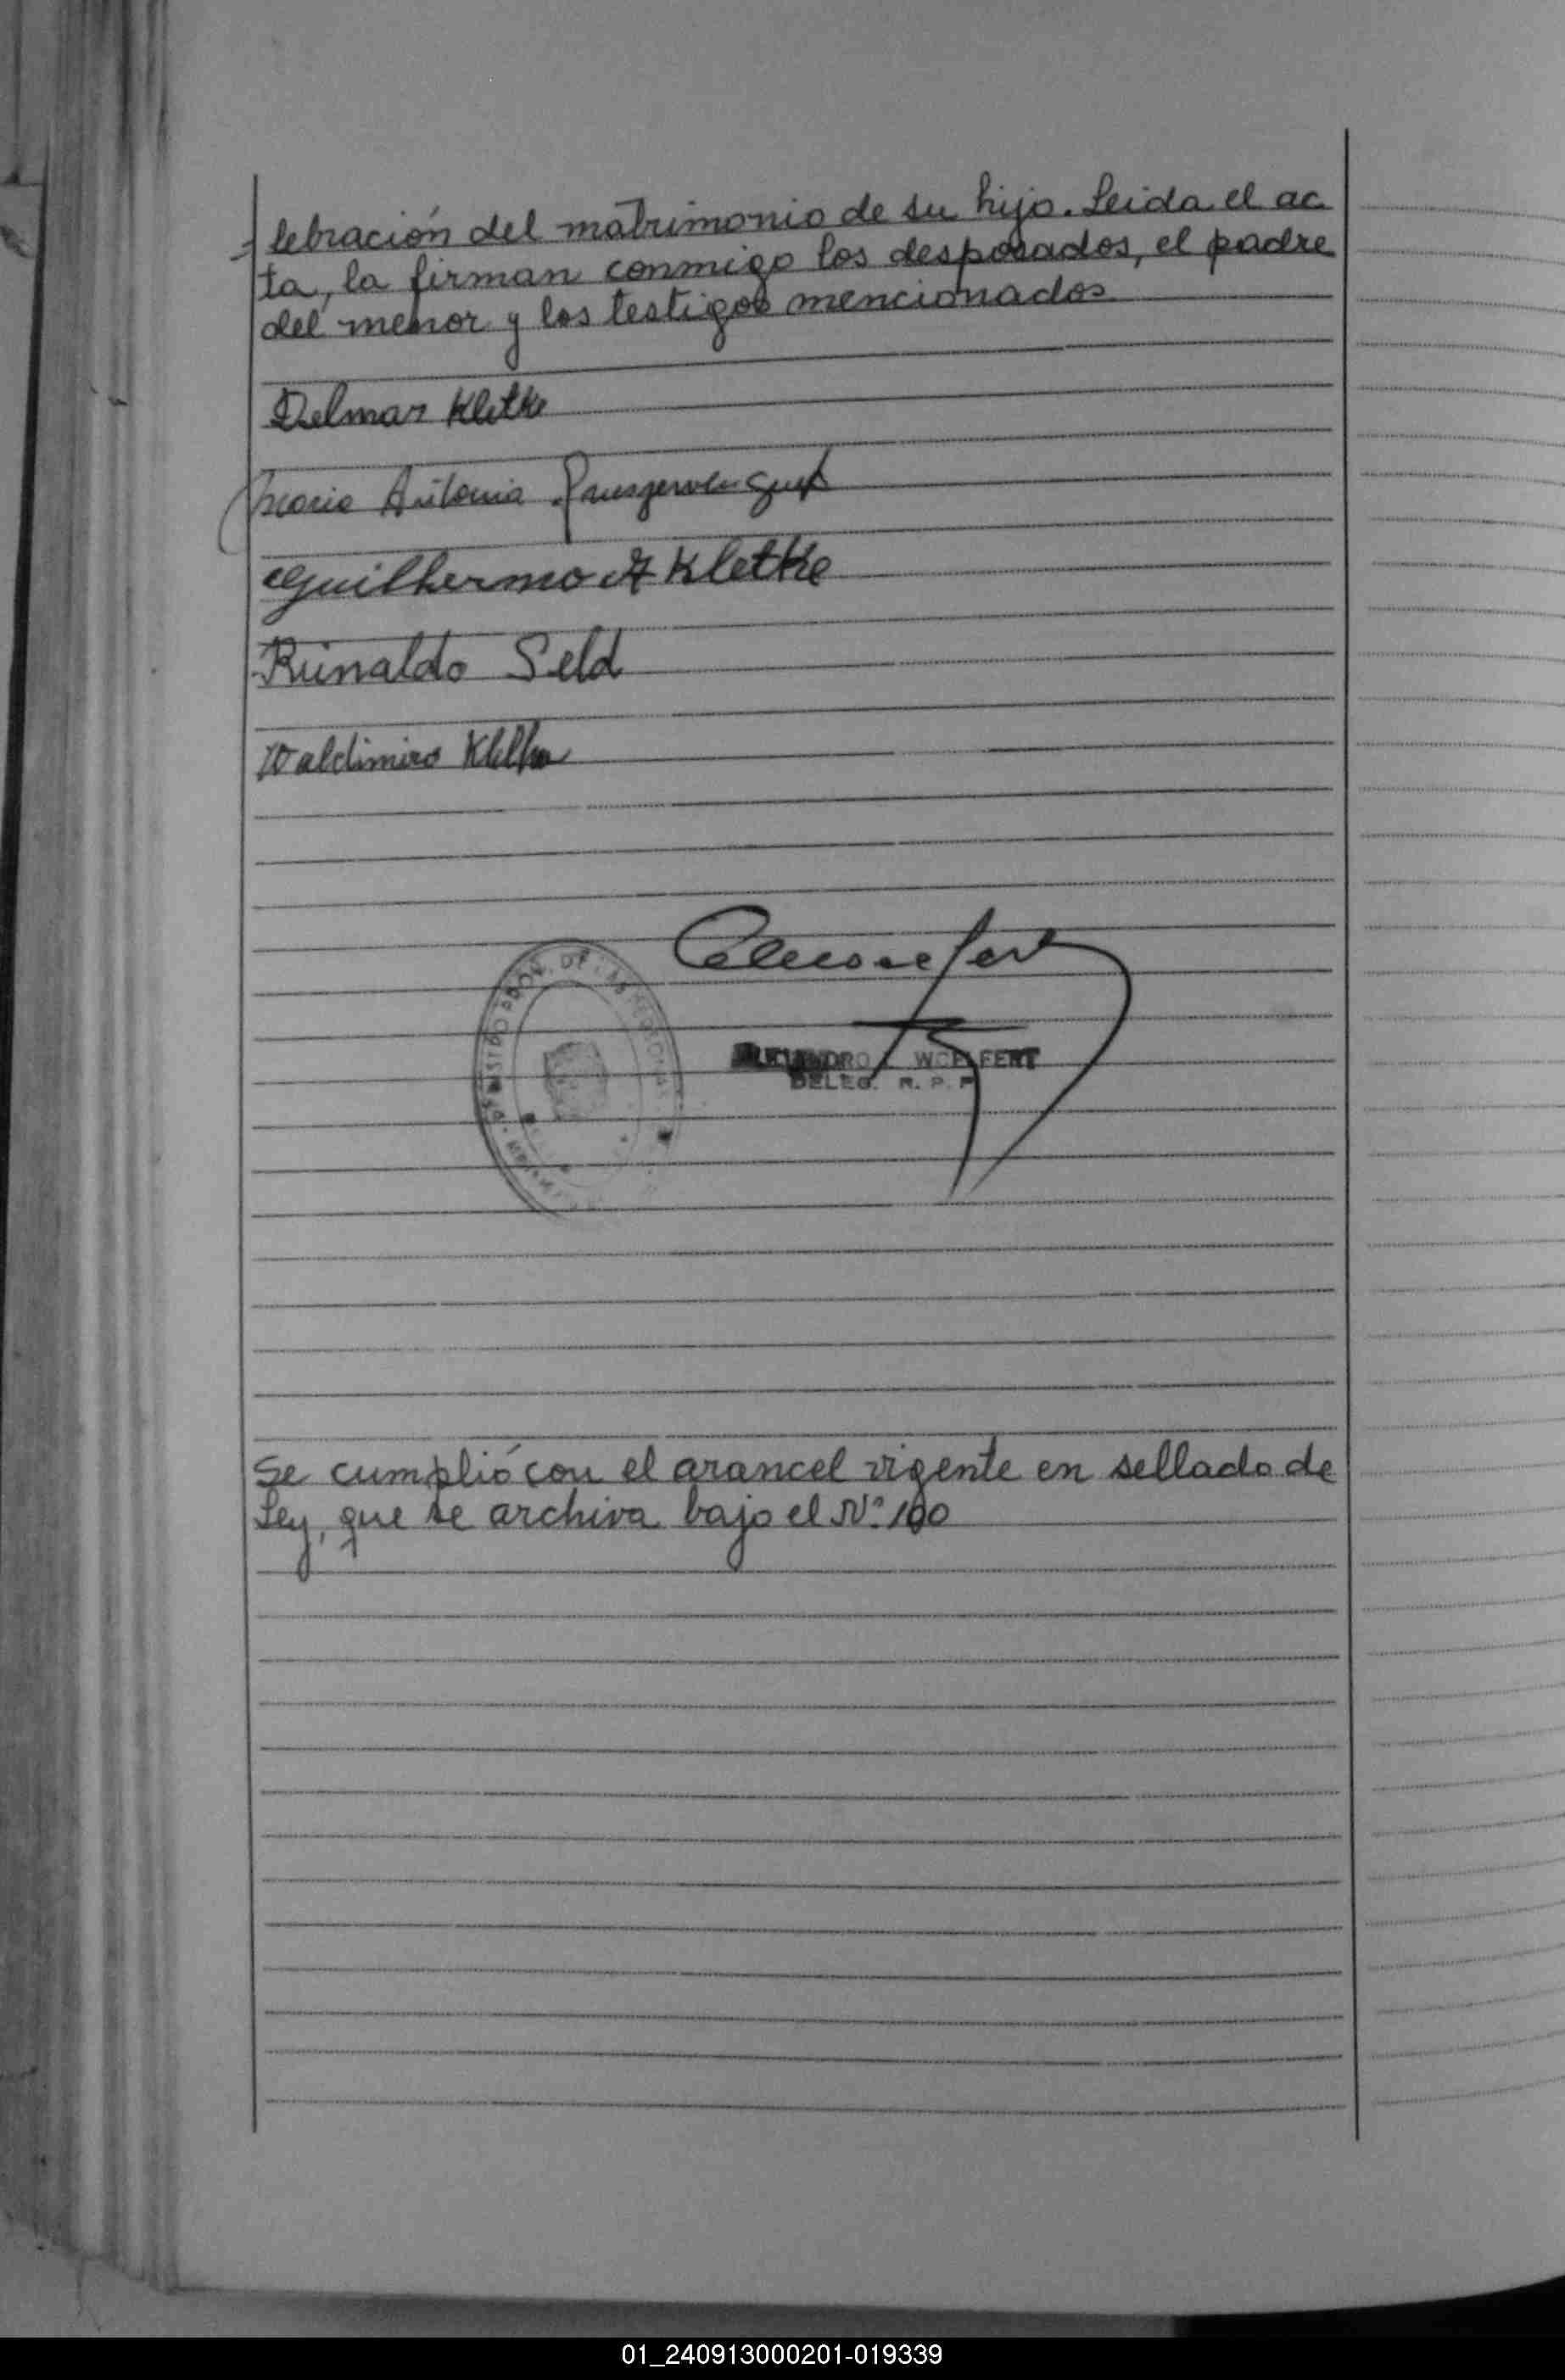 lebración del matrimonio de su hijo. Leida el ac
ta, la firman conmigo los desposados, el padre
del menor y los testigos mencionados
Delmar Kletke
Maria Antonia
Guilhermo A Kletke
Reinaldo Seld
Waldimiro
DE LAS PERSONAS
WOELFERT
DELEG. R. P. P
Se cumplió con el arancel vigente en sellado de
Ley, que se archiva bajo el N° 100
01_240913000201-019339